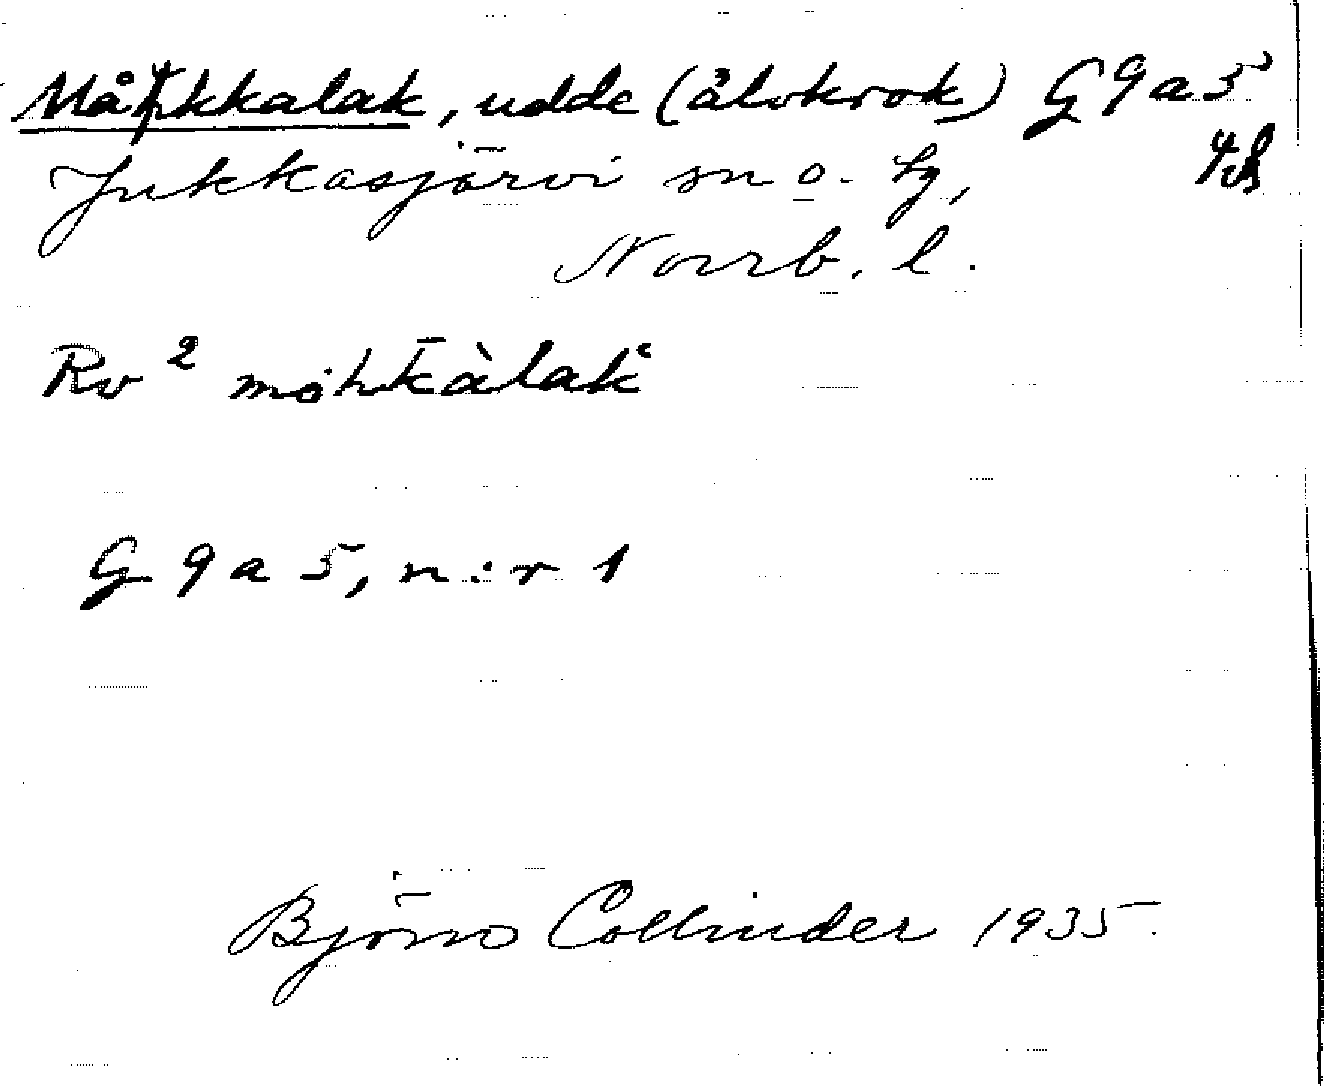 Måhkkalak, udde (älvkrok) G9a5
Jukkasjärvi sn o. lg,
Norrb. l.
Rv ² möhkàlak
G 9 a 5, n:r 1
Björn Collinder 1935.